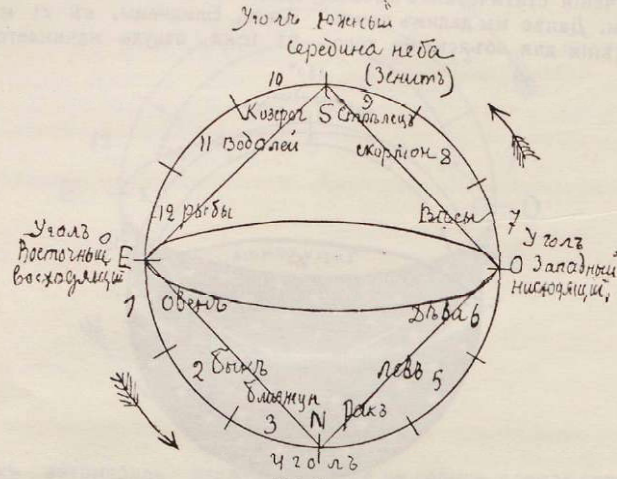 Далѣе мы дадимъ
Уголъ Южный
Середина неба
(Зенитъ)
10
9
Козерог S Стрѣлецъ
11 Водолей
скорпион 8
12 рыбы
Вѣсы 7
Уголъ
Восточный
восходящий
E
О
Уголъ
Западный
нисходящий,
1
Овенъ
Дѣва 6
2 быкъ
левъ 5
близнун
3
N
Ракъ
Уголъ